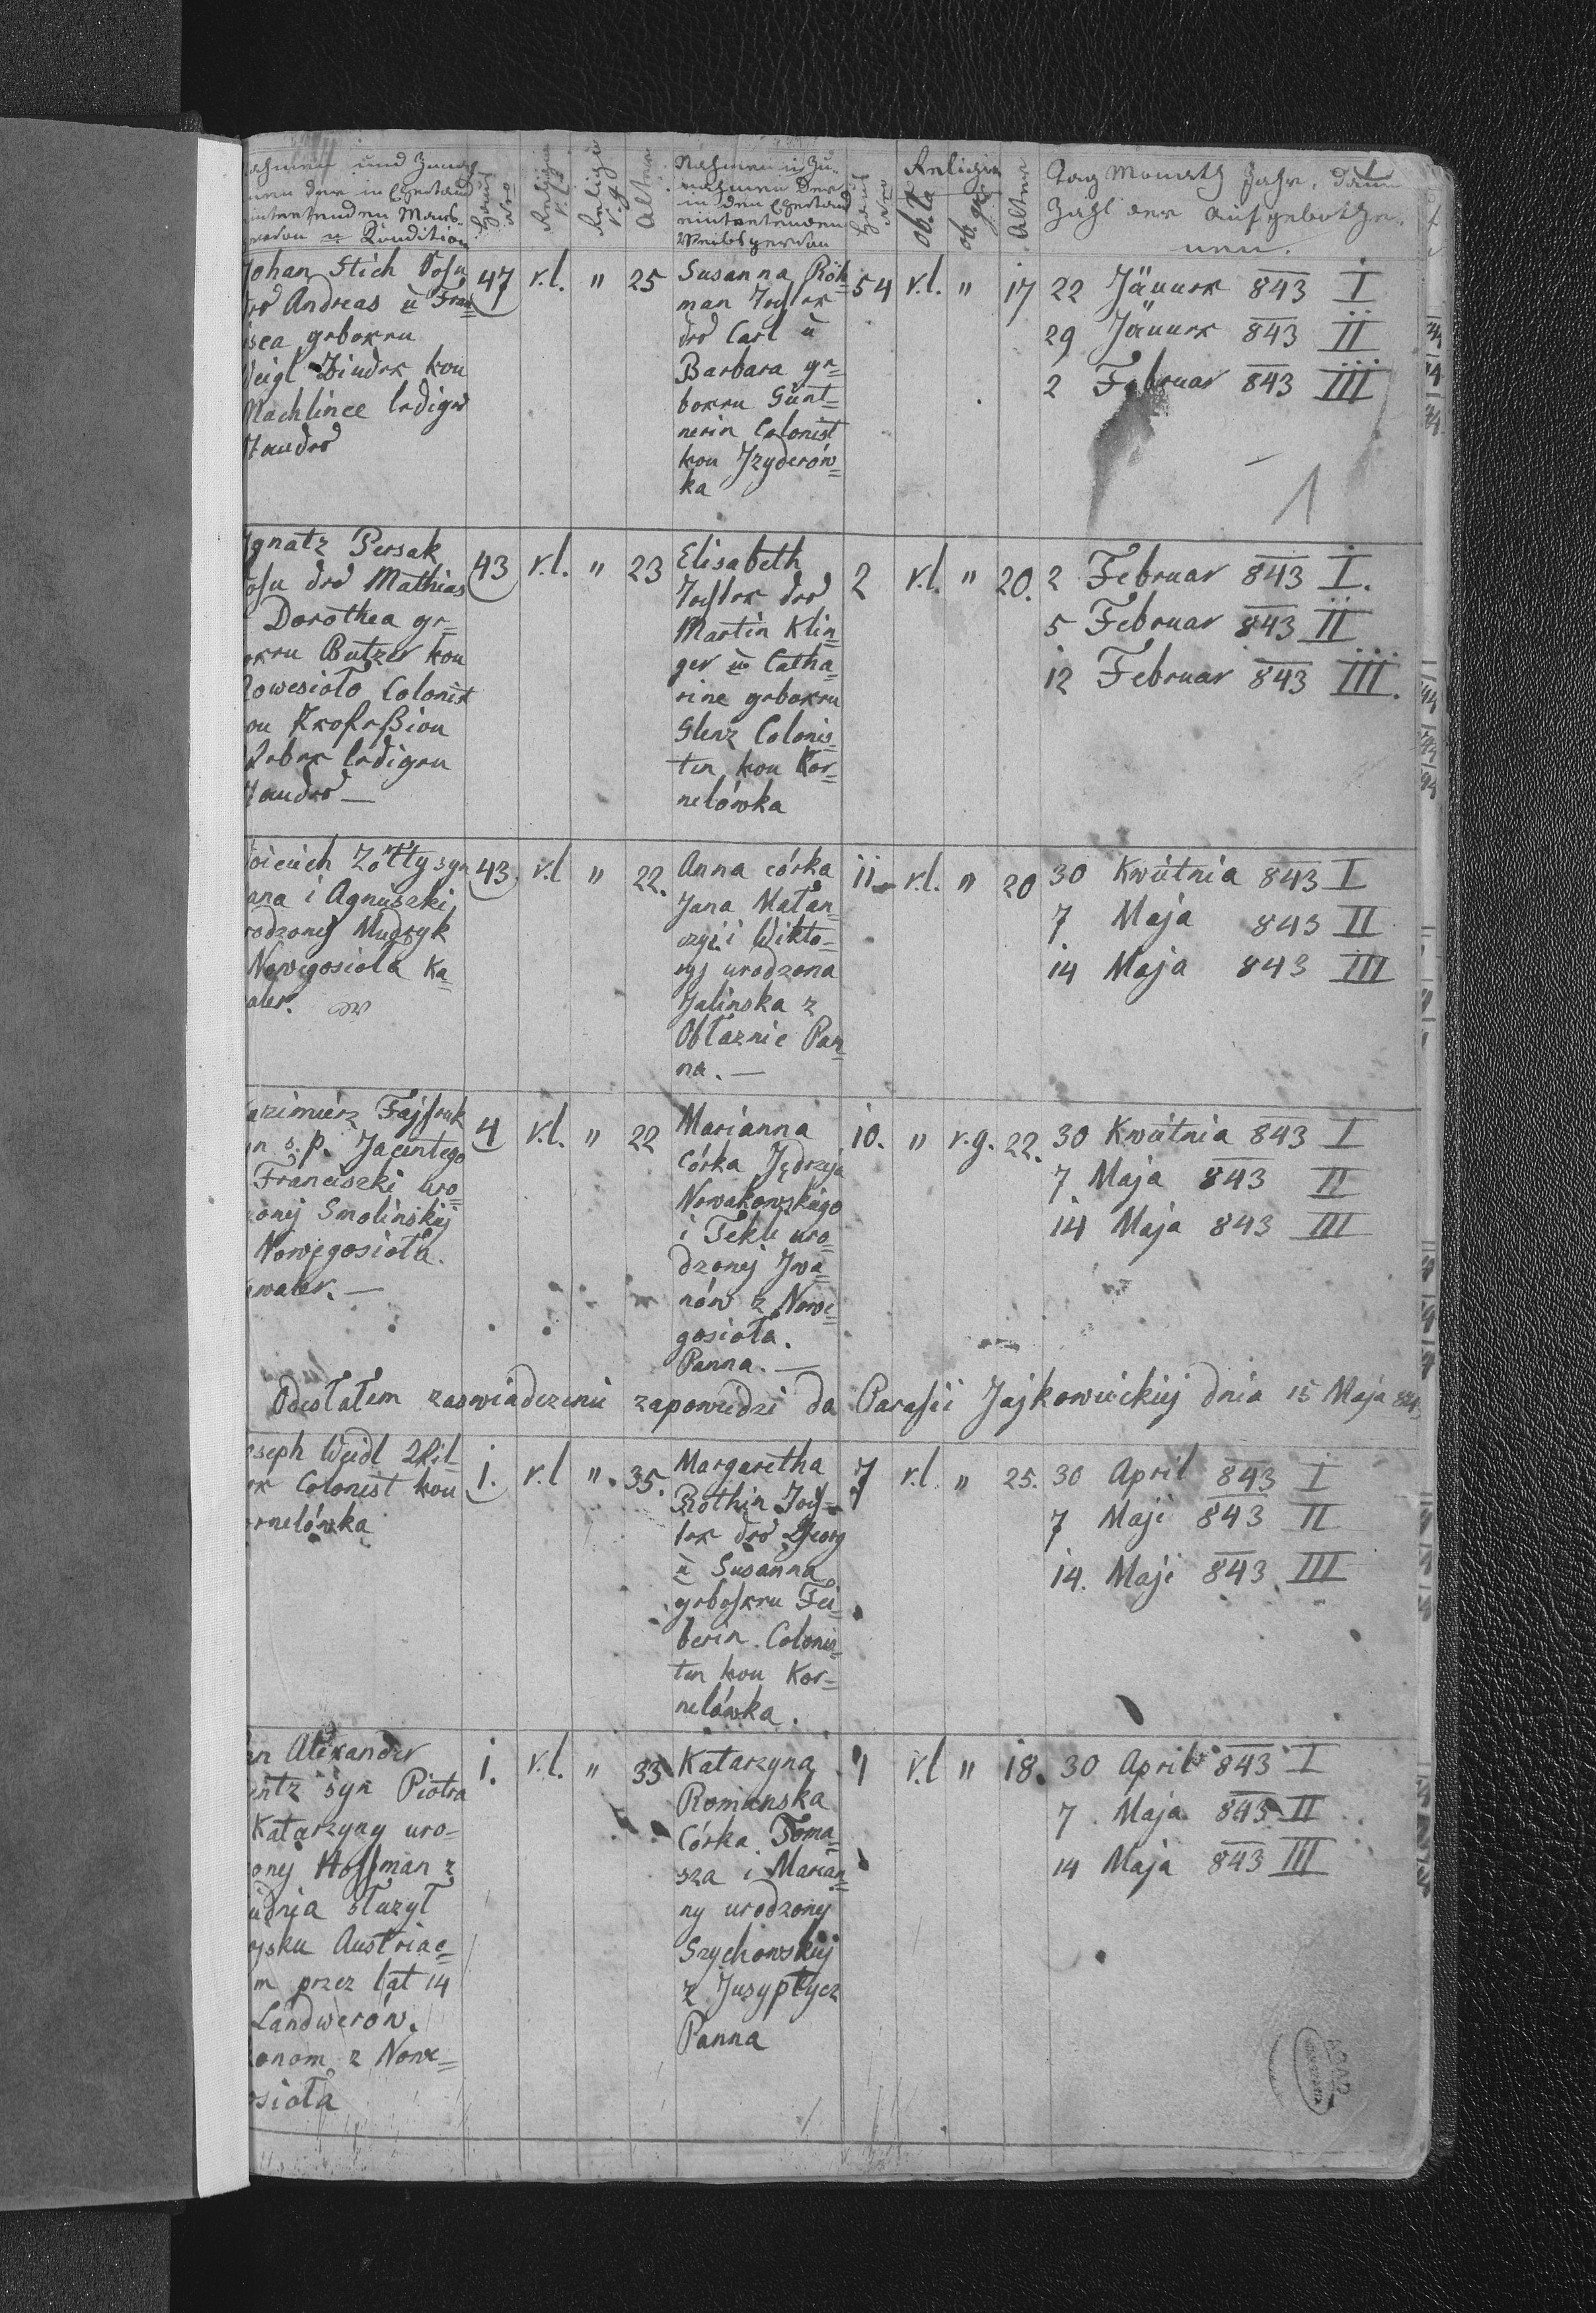 Nahmen und Zunah
men der in Ehestand
eintretenden Manns
person u Kondition
Haus Nro
Religion r. l.
Religion r. g.
Alter
Nahmen u Zu-
nahmen der
in den Ehestand
eintretenden
Weibsperson
Haus Nro
Religion
ob. l.
ob. gr.
Alter
Tag Monath Jahr, dann
Zahl der Aufgebothe-
nen.
Johan Stich Sohn
des Andreas u Fran=
isca geboren
Weigl Kinder von
Machlinec lediges
Standes
47
r.l.
"
25
Susanna Röh=
man Tochter
des Carl u
Barbara ge=
boren Günt=
nerin Colonist
von Izyderów=
ka
54
r.l.
"
17
22 Jänner 843 I
29 Jänner 843 II
2 Februar 843 III
1
Ignatz Persak
Sohn des Mathias
Dorothea ge=
oren Butzer von
Nowesioło Colonist
von Profeßion
Weber ledigen
Standes —
43
r.l.
"
23
Elisabeth
Tochter des
Martin Klin=
ger u Catha=
rine geboren
Glenz Colonis=
tin von Kor=
nelówka
2
r.l.
"
20.
2 Februar 843 I.
5 Februar 843 II
12 Februar 843 III.
oiciech Żółty syn
ana i Agnuszki
rodzonej Mudryk
Nowegosiola Ka=
aler.
43
r.l
"
22.
Anna córka
Jana Matan=
czyi i Wikto=
ryj urodzona
Jalinska z
Obłaznic Pan=
na. —
11
r.l.
"
20
30 Kwietnia 843 I
7 Maja 843 II
14 Maja 843 III
azimierz Fajfruk
yn s. p. Jacentego
Franciszki uro=
zonej Smolinskiej
Nowegosioła.
awaler. —
4
r.l.
"
22
Marianna
córka Jędrzeja
Nowakowskiego
i Tekli uro=
dzonej Iwa=
nów z Nowe=
gosioła.
Panna. —
10.
"
r.g.
22.
30 Kwietnia 843 I
7 Maja 843 II
14 Maja 843 III
Odesłałem zaswiadczenie zapowiedzi do Parafii Jajkowieckiej dnia 15 Maja 843
oseph Weidl Wit-
er Colonist von
ornelówka
1.
r.l
"
35.
Margaretha
Rothin Toch=
ter des Georg
u Susanna
gebohren Fei=
berin Colonis=
tin von Kor=
nelówka.
7
r.l
"
25.
30 April 843 I
7 Maji 843 II
14. Maji 843 III
an Alexander
entz syn Piotra
Katarzyny uro=
zonej Hoffman z
udnia służył
ojsku Austriac=
m przez lat 14
Landwerów.
konom z Nowe=
osioła
1.
r.l.
"
33
Katarzyna
Romanska
Córka Toma=
sza i Marian=
ny urodzonej
Szychowskiej
z Jusyptycz
Panna
r.l
"
18.
30 April 843 I
7 Maja 843 II
14 Maja 843 III
AGAD